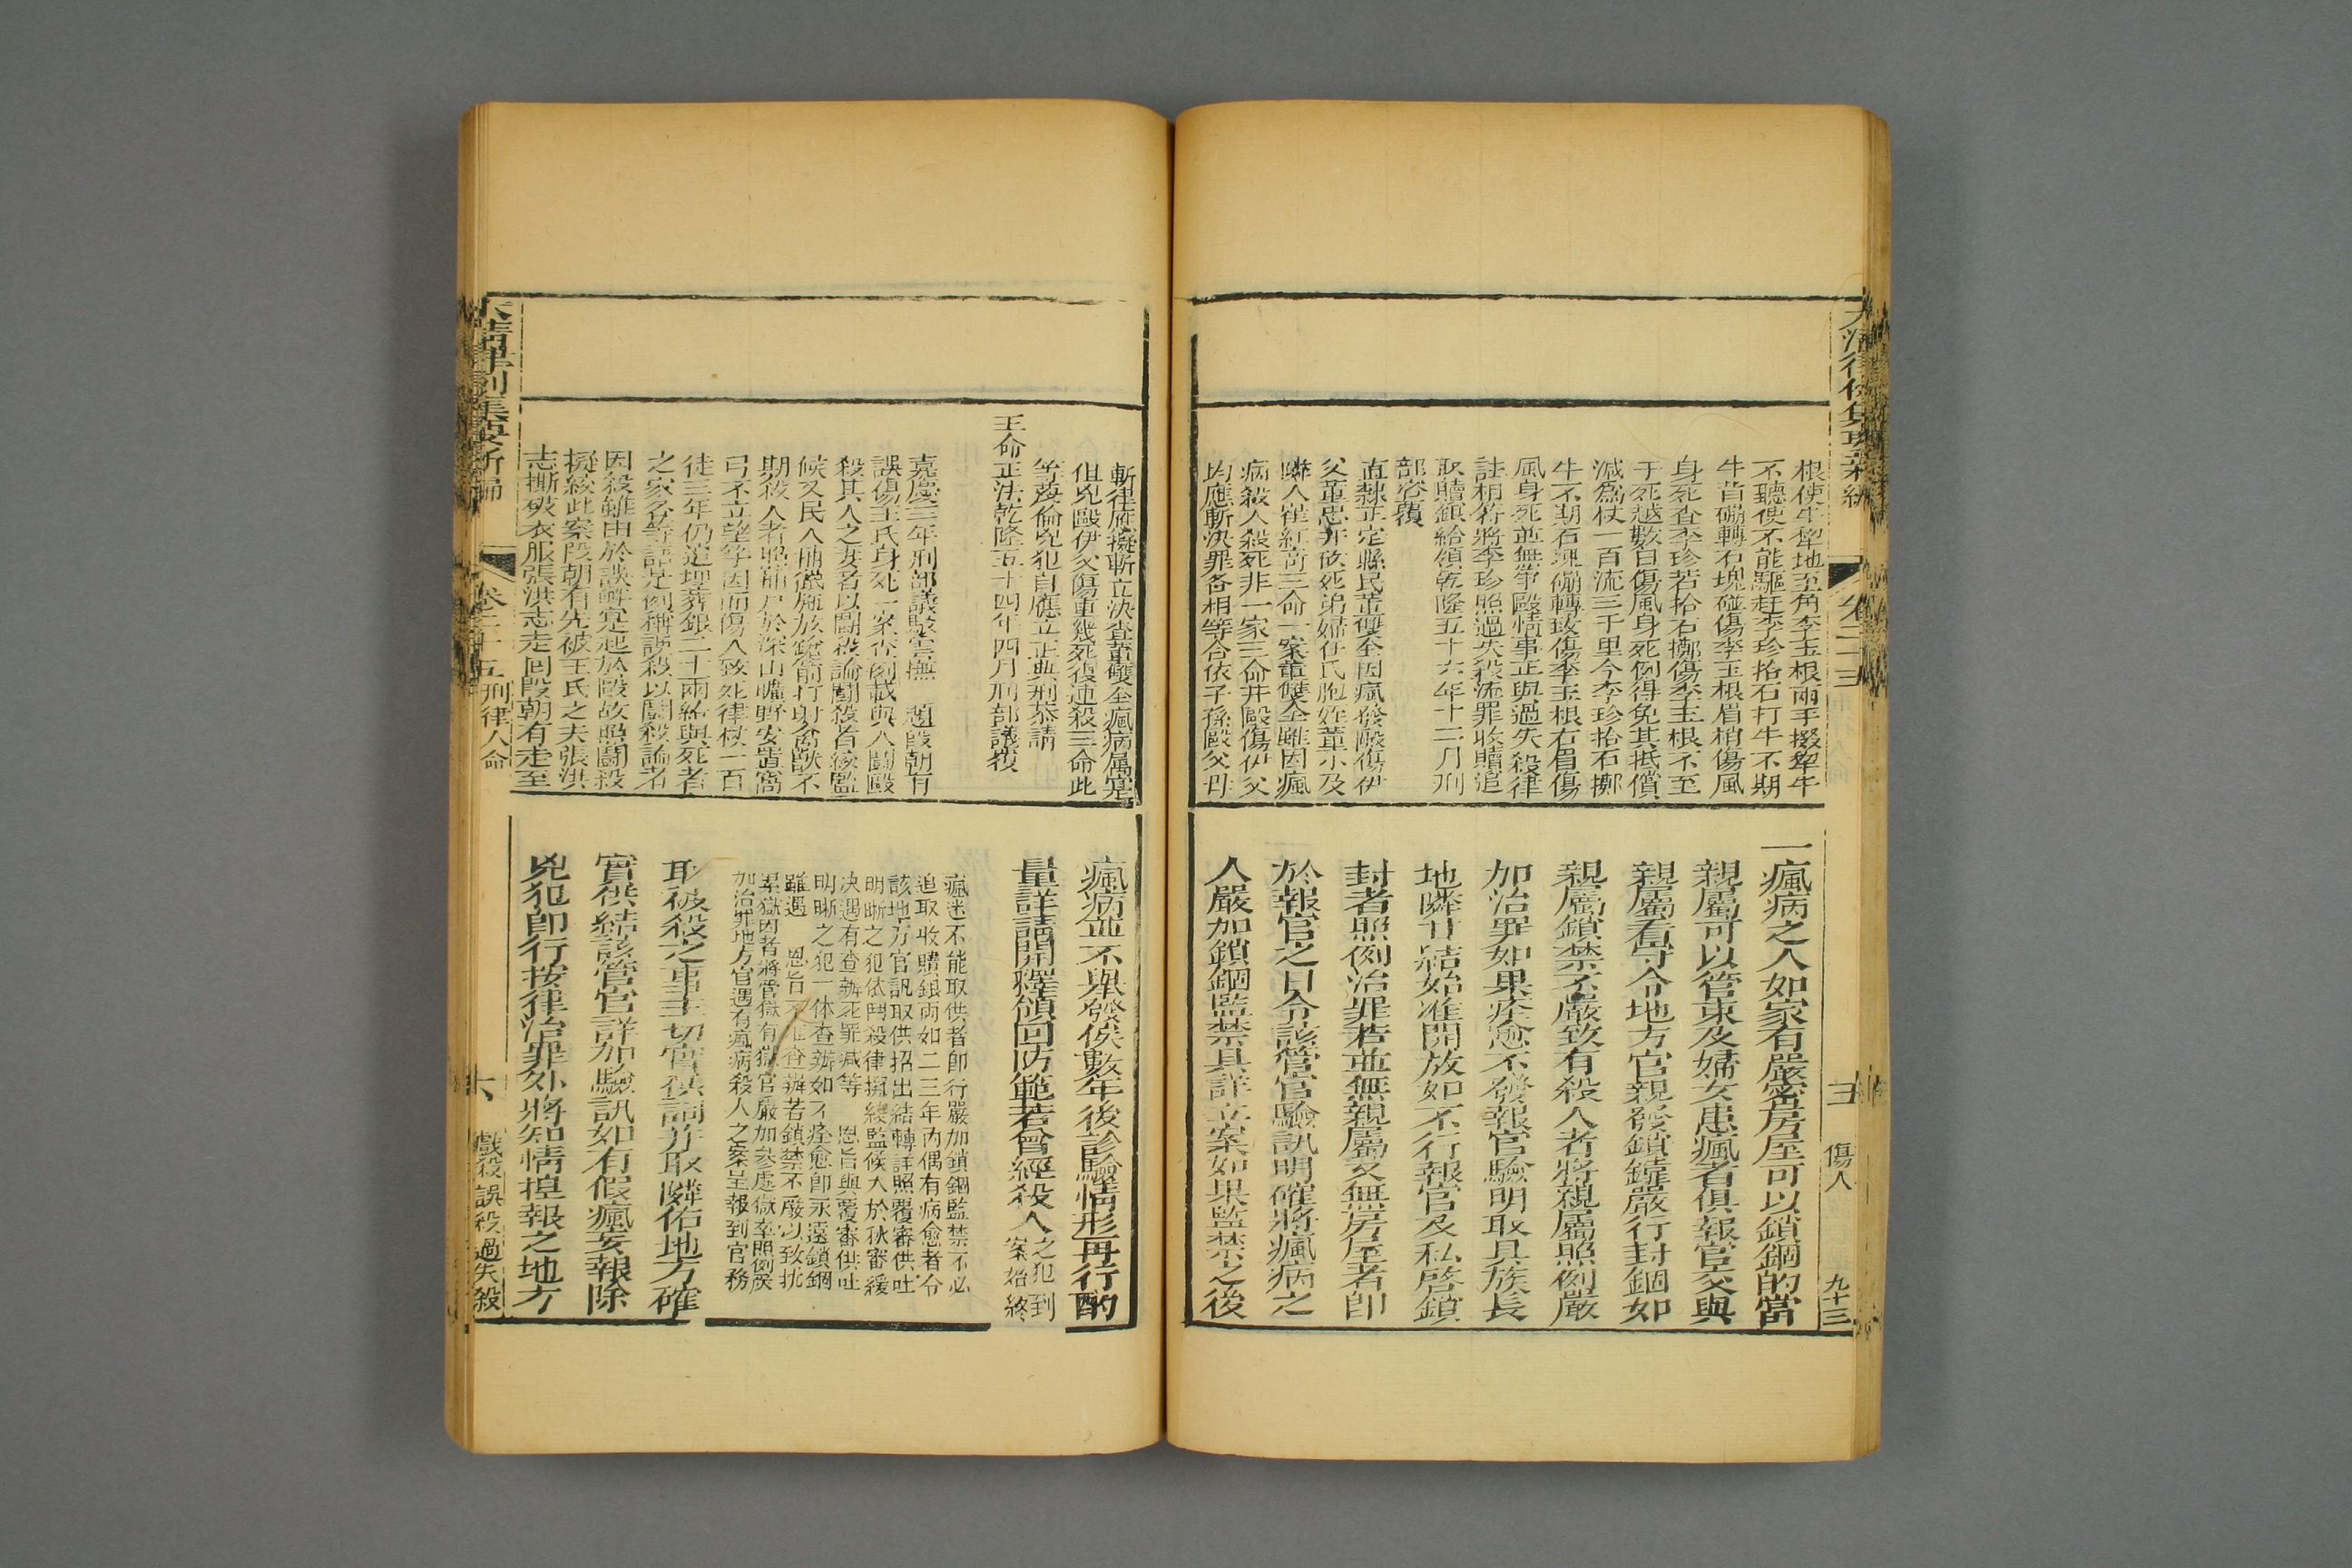 根使牛犂地至角李玉根兩手掇犂牛
不聽使不能驅赶李珍拾石打牛不期
牛首磞轉石塊碰傷李玉根眉梢傷風
身死查李珍若拾石擲傷李玉根不至
于死越數日傷風身死例得免其抵償
減爲杖一百流三千里今李珍拾石擲
牛不期石塊磞轉致傷李玉根右眉傷
風身死並無爭毆情事正與過失殺律
註相符將李珍照過失殺流罪收贖追
取贖銀給領乾隆五十六年十二月刑
部咨覆
直隸正定縣民董雙全因瘋發毆傷伊
父董忠并砍死弟婦任氏胞姪董小及
隣人崔紅奇三命一案董雙全雖因瘋
病殺人殺死非一家三命并毆傷伊父
均應斬決罪各相等合依子孫毆父母
一瘋病之人如家有嚴密房屋可以鎖錮的當
親屬可以管束及婦女患瘋者俱報官交與
親屬看守令地方官親發鎖鐐嚴行封錮如
親屬鎖禁不嚴致有殺人者將親屬照例嚴
加治罪如果痊愈不發報官驗明取具族長
地隣甘結始准開放如不行報官及私啓鎖
封者照例治罪若並無親屬又無房屋者即
於報官之日令該管官驗訊明確將瘋病之
人嚴加鎖錮監禁具詳立案如果監禁之後
傷人
九十三
斬律應擬斬立決查董雙全瘋病屬寔
但兇毆伊父傷重幾死復連殺三命此
等蔑倫兇犯自應立正典刑恭請
王命正法乾隆五十四年四月刑部議覆
嘉慶三年刑部議駁雲撫 題段朝有
誤傷王氏身死一案查例載與人鬪毆
殺其人之妻者以鬪殺論鬪殺者絞監
候又民人捕獵施放鎗箭打射禽獸不
期殺人者照捕戶於深山曠野安置窩
弓不立望竿因而傷人致死律杖一百
徒三年仍追埋葬銀二十兩給與死者
之家各等語是例稱誤殺以鬪殺論者
因殺雖由於誤衅寔起於毆故照鬪殺
擬絞此案段朝有先被王氏之夫張洪
志撕破衣服張洪志走回段朝有走至
瘋病並不舉發俟數年後診驗情形再行酌
量詳請開釋領回防範若曾經殺人之犯到案始終
瘋迷不能取供者即行嚴加鎖錮監禁不必
追取收贖銀兩如二三年內偶有病愈者令
該地方官訊取供招出結轉詳照覆審供吐
明晰之犯依鬥殺律擬絞監候入於秋審緩
決遇有查辦死罪減等 恩旨與覆審供吐
明晰之犯一体查辦如不痊愈即永遠鎖錮
雖遇 恩旨不准查辦若鎖禁不嚴以致擾
累獄囚者將管獄有獄官嚴加參處獄卒照例嚴
加治罪地方官遇有瘋病殺人之案呈報到官務
取被殺之事主切實供詞并取隣佑地方確
實供結該管官詳加驗訊如有假瘋妄報除
兇犯即行按律治罪外將知情揑報之地方
卷二十五刑律人命
六
戲殺誤殺過失殺